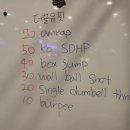 더블유핏
50 amrap
50 kb SDHP
40 box jump
30 wall ball shot
20 single dumbell thr
10 burpee